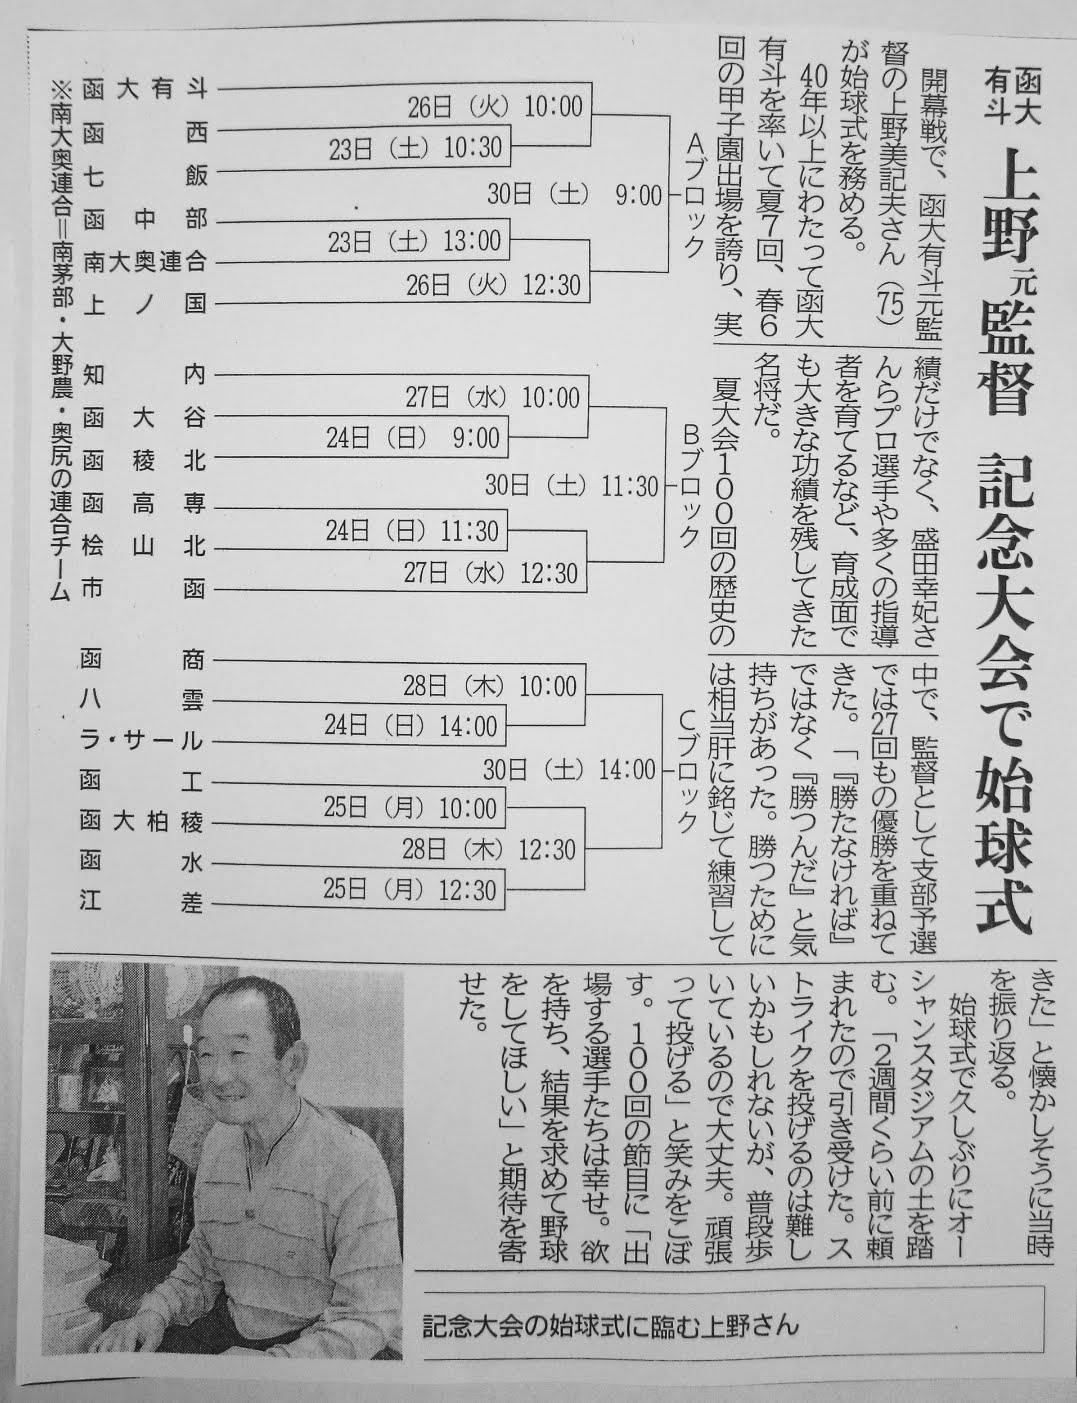 函大
有斗
上野元監督 記念大会で始球式
開幕戦で、函大有斗元監
督の上野美記夫さん（75）
が始球式を務める。
40年以上にわたって函大
有斗を率いて夏７回、春６
回の甲子園出場を誇り、実
績だけでなく、盛田幸妃さ
んらプロ選手や多くの指導
者を育てるなど、育成面で
も大きな功績を残してきた
名将だ。
夏大会１００回の歴史の
中で、監督として支部予選
では27回もの優勝を重ねて
きた。「『勝たなければ』
ではなく『勝つんだ』と気
持ちがあった。勝つために
は相当肝に銘じて練習して
きた」と懐かしそうに当時
を振り返る。
始球式で久しぶりにオー
シャンスタジアムの土を踏
む。「２週間くらい前に頼
まれたので引き受けた。ス
トライクを投げるのは難し
いかもしれないが、普段歩
いているので大丈夫。頑張
って投げる」と笑みをこぼ
す。１００回の節目に「出
場する選手たちは幸せ。欲
を持ち、結果を求めて野球
をしてほしい」と期待を寄
せた。
Aブロック
函大有斗
函西
七飯
函中部
南大奥連合
上ノ国
26日（火）10:00
23日（土）10:30
30日（土）9:00
23日（土）13:00
26日（火）12:30
Bブロック
知内
函大谷
函稜北
函高専
桧山北
市函
27日（水）10:00
24日（日）9:00
30日（土）11:30
24日（日）11:30
27日（水）12:30
Cブロック
函商
八雲
ラ・サール
函工
函大柏稜
函水
江差
28日（木）10:00
24日（日）14:00
30日（土）14:00
25日（月）10:00
28日（木）12:30
25日（月）12:30
※南大奥連合＝南茅部・大野農・奥尻の連合チーム
記念大会の始球式に臨む上野さん